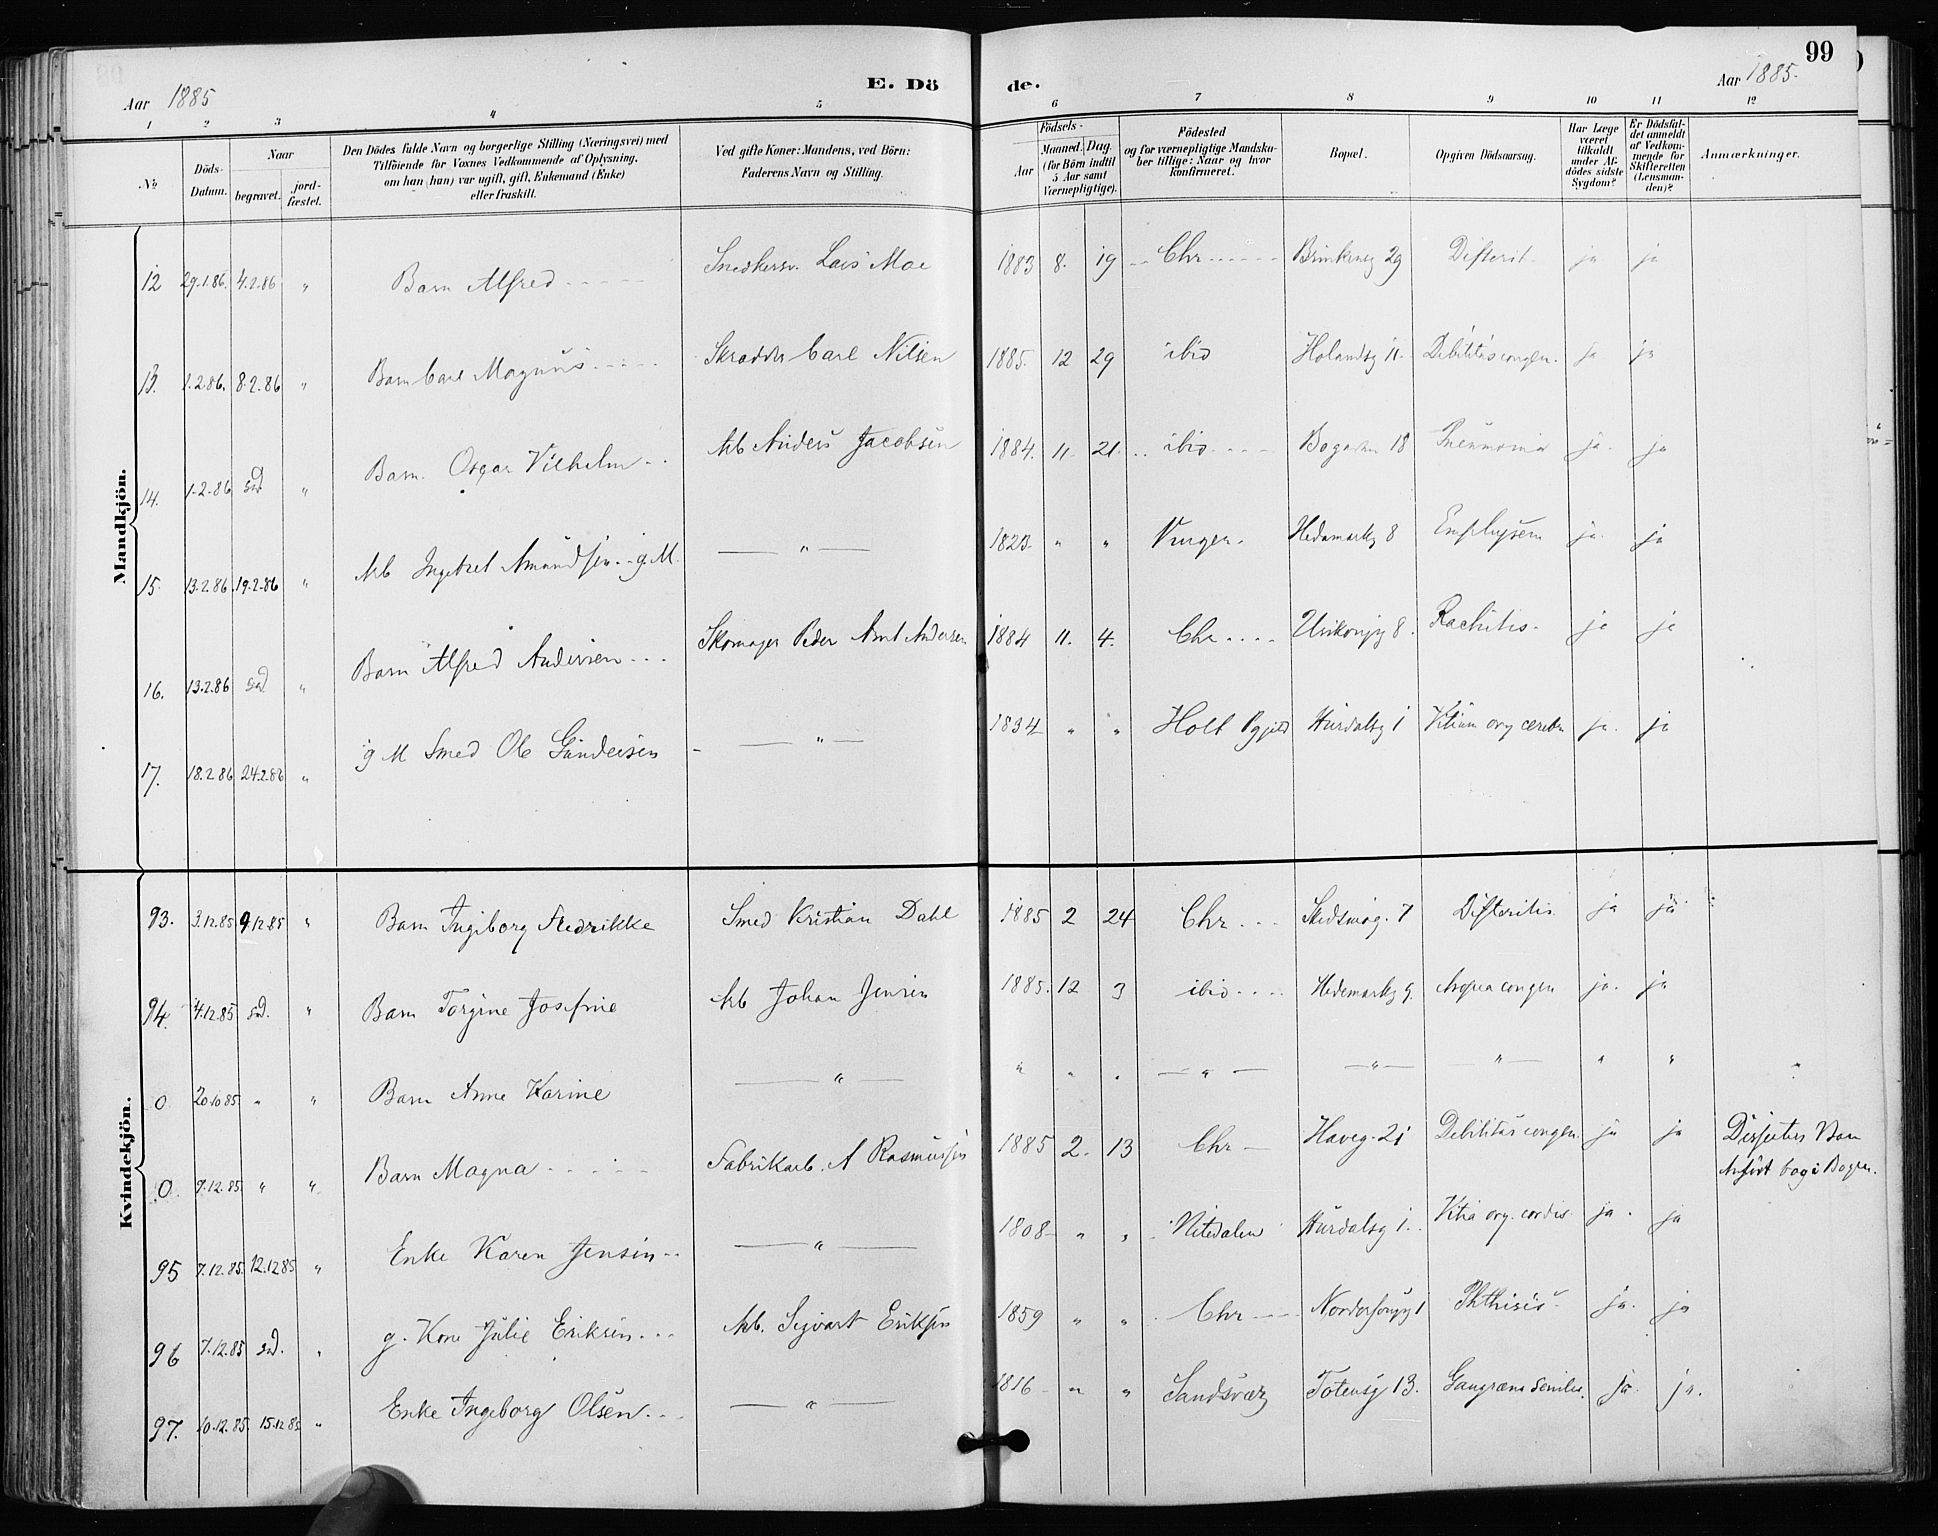 99
Aar 1885 E. Dö de. Aar 1885.
1 2 3 4 5 6 7 8 9 10 11 12
No
Döds-Datum.
Naar
begravet. jord-fæstet.
Den Dödes fulde Navn og borgerlige Stilling (Næringsvei) med
Tilföiende for Voxnes Vedkommende af Oplysning,
om han (hun) var ugift, gift, Enkemand (Enke)
eller fraskilt.
Ved gifte Koner: Mandens, ved Börn:
Faderens Navn og Stilling.
Födsels-
Aar
Maaned. Dag
(for Börn indtil
5 Aar samt
Værnepligtige).
Födested
og for værnepligtige Mandska-
ber tillige: Naar og hvor
konfirmeret.
Bopæl.
Opgiven Dödsaarsag.
Har Læge
været
tilkaldt
under Af-
dödes sidste
Sygdom?
Er Dödsfal-
det anmeldt
af Vedkom-
mende for
Skifteretten
(Lensman-
den)?
Anmærkninger.
Mandkjön.
12 29.1.86. 4.2.86 " Barn Alfred Snedkersv. Lars Moe 1883 8. 19 Chr Brinkeng 29 Difterit. ja ja
13. 1.2.86. 8.2.86 " Barn Carl Magnus Skrædder Carl Nilsen 1885. 12 29 ibid Holandsg 11. Debilitas congen. ja ja
14. 1.2.86 sad " Barn. Oscar Vilhelm Arb Anders Jacobsen 1884. 11. 21. ibid 18 Pneumonia ja. ja
15. 13.2.86. 19.2.86 " Arb Ingebret Amundsen g. M. — " — 1823. " " Vinger. Hedemarkg 8 Emphysem ja. ja
16. 13.2.86 sad " Barn Alfred Andersen Skomager Peder Amt Andersen 1884 11. 4. Chr 8. Rachitis. ja ja
17. 18.2.86 24.2.86 " g M Smed Ole Gundersen — " — 1834 " " Holt Pgjeld Hurdalsg 1 Vitium org cerebri ja. ja
Kvindekjön.
93. 3.12.85 9.12.85 " Barn Ingiborg Fredrikke Smed Kristian Dahl 1885 2 24 Chr Skedsmog. 7 Difteritis ja ja
94. 4.12.85 sad. " Barn Torgine Josefine Arb Johan Jensen 1885. 12 3 ibid Hedemarkg 9. congen ja. ja
0 20.10.85 " " Barn Anne Karine — " — " " " — " — — " — — " — " " "
0. 7.12.85. " " Barn Magna Fabrikarb. A Rasmussen 1885 2. 13 Chr Haveg. 21 Debilitas congen. ja ja Barn
Anfört bag i Bogen.
95 7.12.85. 12.12 85 " Enke Karen Jensen — " — 1808 " " Nitedalen Hurdalsg 1. Vitia org. cordis ja. ja
96 7.12.85 sad. " g. Kone Julie Eriksen Arb. Sigvart Eriksen 1859 " " Chr 1 Phthisis ja. ja
97. 10.12.85. 15.12 85 " Enke Ingeborg Olsen — " — 1816 " " Sandsvær Totensg 13. Gangræna senilis. ja. ja.